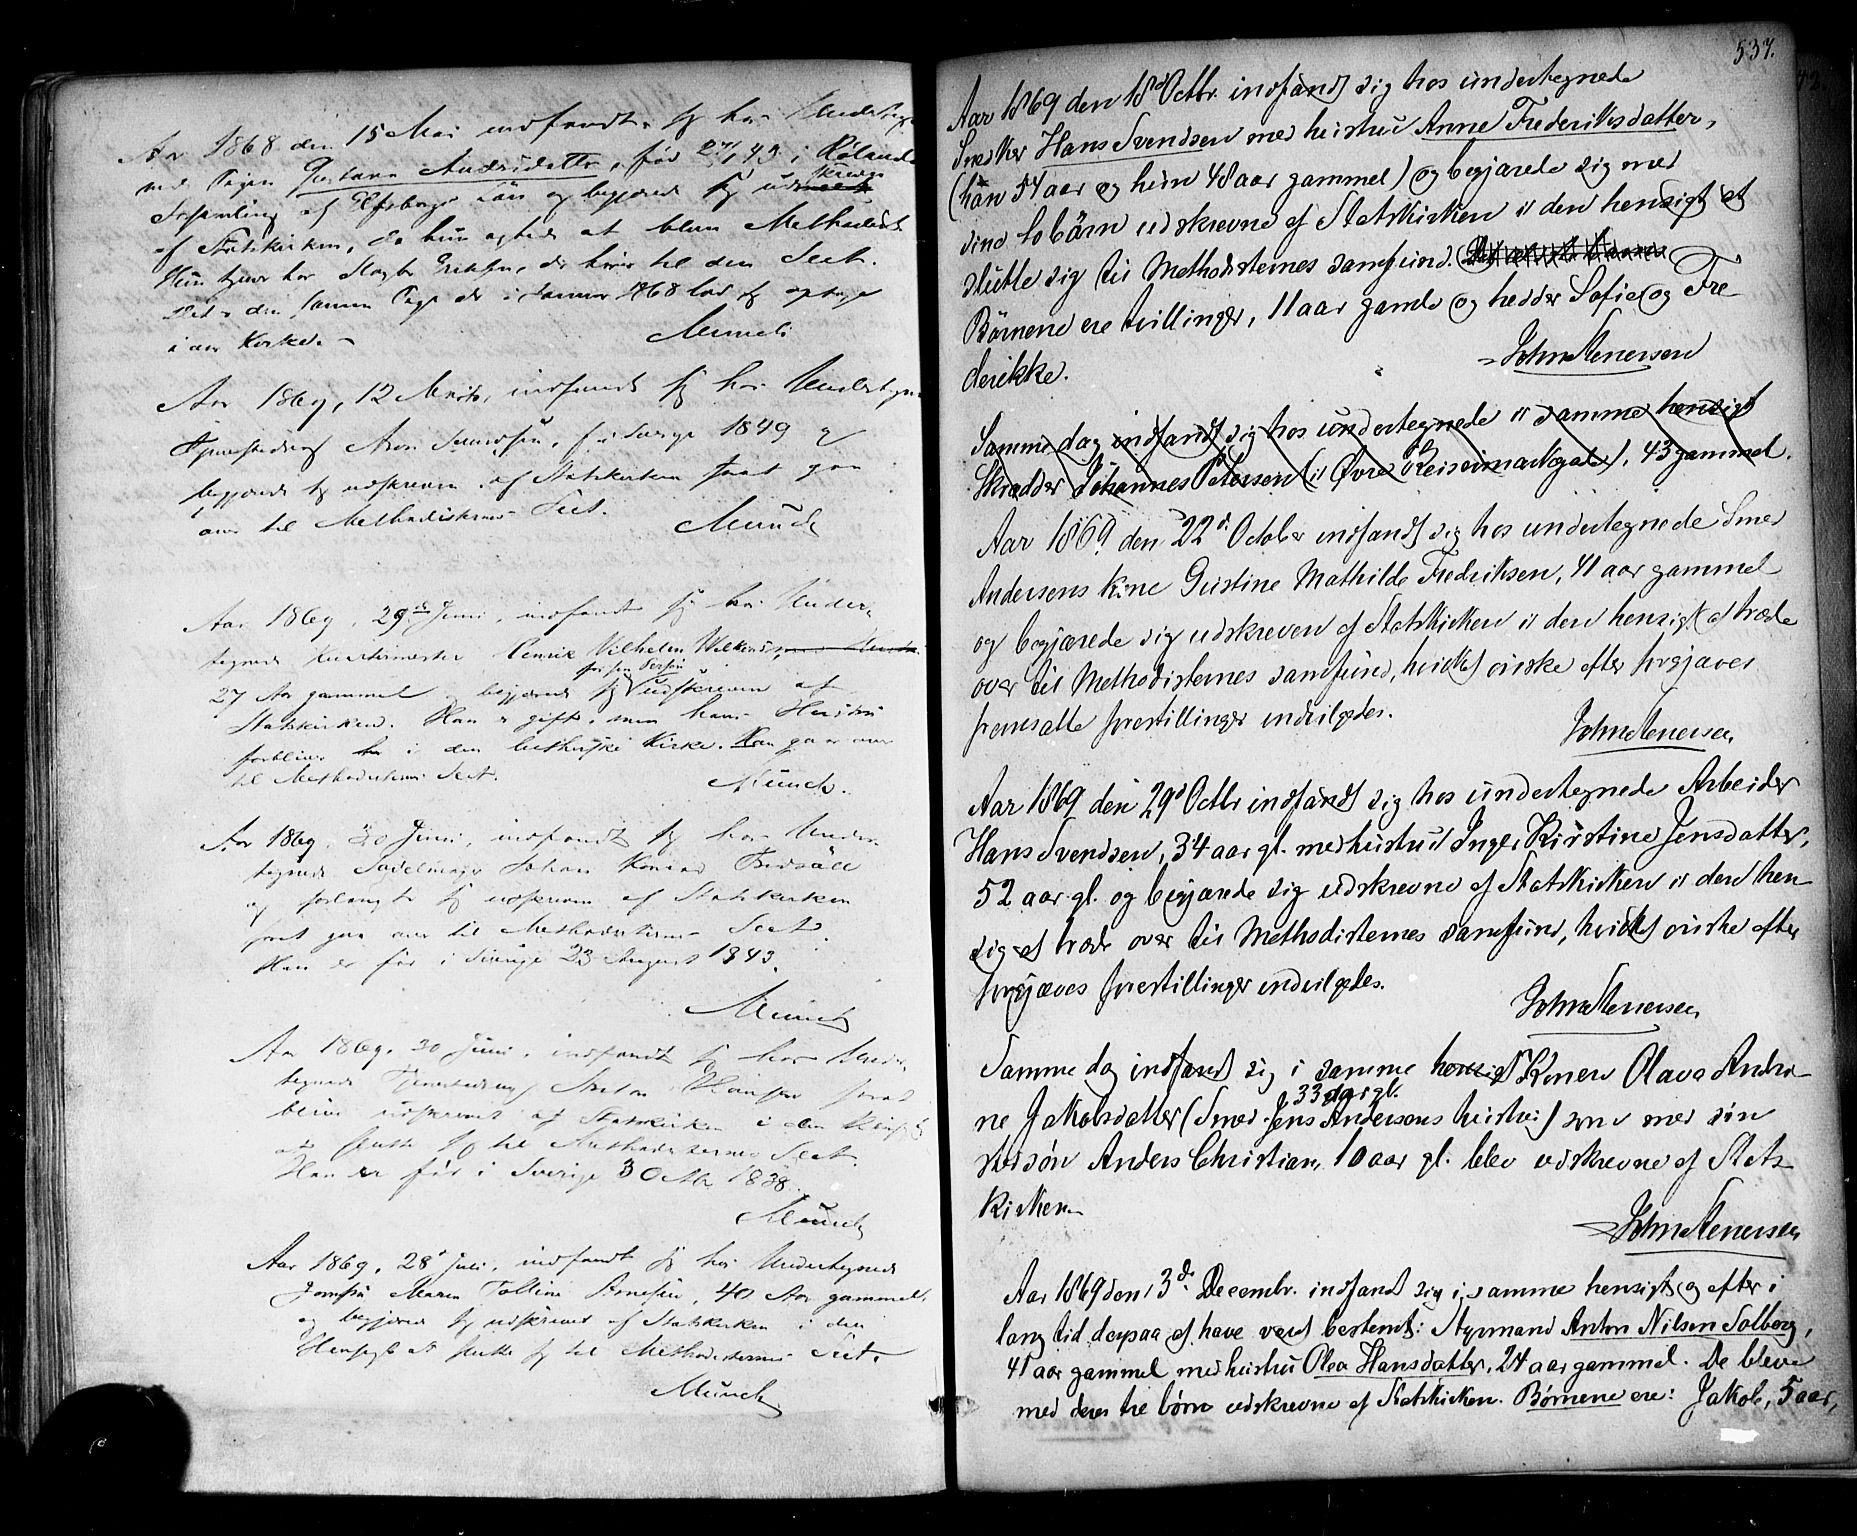 Aar 1868 den 15 Mai indfandt sig hos Undertegn
nede Pigen Gustava Andersdatter, fød 27/1 43 i Rölanda
skreven
Forsamling af Elfsborgs Län og begjærede sig ud
af Statskirken, da hun agtede at blive Methodist.
Hun tjener hos Slagter Eriksen, der hører til den Sect.
Det er den samme Pige der i Januar 1868 lod sig optage
i vor Kirke.
Munch
Aar 1869, 12 Marts, indfandt sig hos Undertegn
Tjenestedreng Aron, fød i Sverige 1849 og
begjærede sig udskreven af Statskirken for at gaa
over til Methodisternes Sect.
Munch
Aar 1869, 29de Juni, indfandt sig hos Under-
tegnede Kvartermester Henrik Vilhelm Wilkens
for sin Person
27 Aar gammel og begjærede sig udskreven af
Statskirken. Han er gift, men hans Hustru
forbliver i den lutherske Kirke. Han gaar over
til Methodisternes Sect.
Munch.
Aar 1869, 30 Juni, indfandt sig hos Under-
tegnede Sadelmager Johan Konrad
og forlangte sig udskreven af Statskirken
for at gaa over til Methodisternes Sect.
Han er fød i Sverige 23 August 1843.
Munch
Aar 1869, 30 Juni, indfandt sig hos Under-
tegnede Tjenestedreng Anton Hansen for at
blive udskrevet af Statskirken i den Hensigt
at slutte sig til Methodisternes Sect.
Han er fød i Sverige 3 Octbr. 1838.
Munch
Aar 1869, 28de Juli, indfandt sig hos Undertegnede
Jomfru Maren Tolline Arnesen, 40 Aar gammel,
og begjærede sig udskrevet af Statskirken i den
Hensigt at slutte sig til Methodisternes Sect.
Munch
537.
Aar 1869 den 18de Octbr. indfandt sig hos undertegnede
Snedker Hans Svendsen med hustru Anne Frederiksdatter,
(han 54 aar og hun 48 aar gammel) og begjærede sig med
sine to børn udskrevne af Statskirken i den hensigt at
slutte sig til Methodisternes samfund.
Børnene ere tvillinger, 11 aar gamle og hedder Sofie og Fre-
derikke.
John Stenersen
Samme dag indfandt sig hos undertegnede i samme hensigt
Skrædder Johannes Petersen (i Øvre), 43 gammel.
Aar 1869 den 22de October indfandt sig hos undertegnede Smed
Andersens kone Gustine Mathilde Fredriksen, 41 aar gammel
og begjærede sig udskreven af Statskirken i den hensigt at træde
over til Methodisternes samfund, hvilket ønske efter forgjæves
fremsatte forestillinger indvilgedes.
John Stenersen
Aar 1869 den 29de Octbr indfandt sig hos undertegnede Arbeider
Hans Svendsen, 34 aar gl. med hustru Inger Kirstine Jensdatter,
52 aar gl. og begjærede sig udskrevne af Statskirken i den hen-
sigt at træde over til Methodisternes samfund, hvilket ønske efter
forgjæves forestillinger indvilgedes.
John Stenersen
Samme dag indfandt sig i samme hensigt Konen Olava Andri-
33 aar gl.
ne Jakobsdatter (Smed Jens Andersens hustru) som med sin
stedsøn Anders Christian, 10 aar gl. blev udskrevne af Stats-
kirken.
John Stenersen
Aar 1869 den 3de Decembr. indfandt sig i samme hensigt og efter i
lang tid derpaa at have været bestemt: Styrmand Anton Nilsen Solberg,
41 aar gammel med hustru Olea Hansdatter, 24 aar gammel. De bleve
med deres tre børn udskrevne af Statskirken. Børnene ere: Jakob, 5 aar,